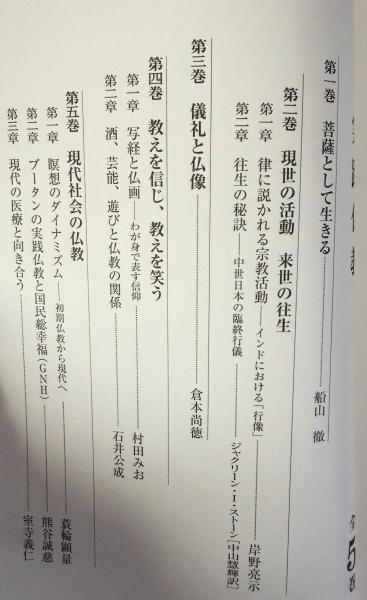 第一巻　菩薩として生きる 船山 徹
第二巻　現世の活動　来世の往生
第一章　律に説かれる宗教活動――インドにおける「行像」 岸野亮示
第二章　往生の秘訣――中世日本の臨終行儀 ジャクリーン・I・ストーン［中山慧輝訳］
第三巻　儀礼と仏像 倉本尚徳
第四巻　教えを信じ、教えを笑う
第一章　写経と仏画――わが身で表す信仰 村田みお
第二章　酒、芸能、遊びと仏教の関係 石井公成
第五巻　現代社会の仏教
第一章　瞑想のダイナミズム――初期仏教から現代へ 蓑輪顕量
第二章　ブータンの実践仏教と国民総幸福（GNH） 熊谷誠慈
第三章　現代の医療と向き合う 室寺義仁
全5巻